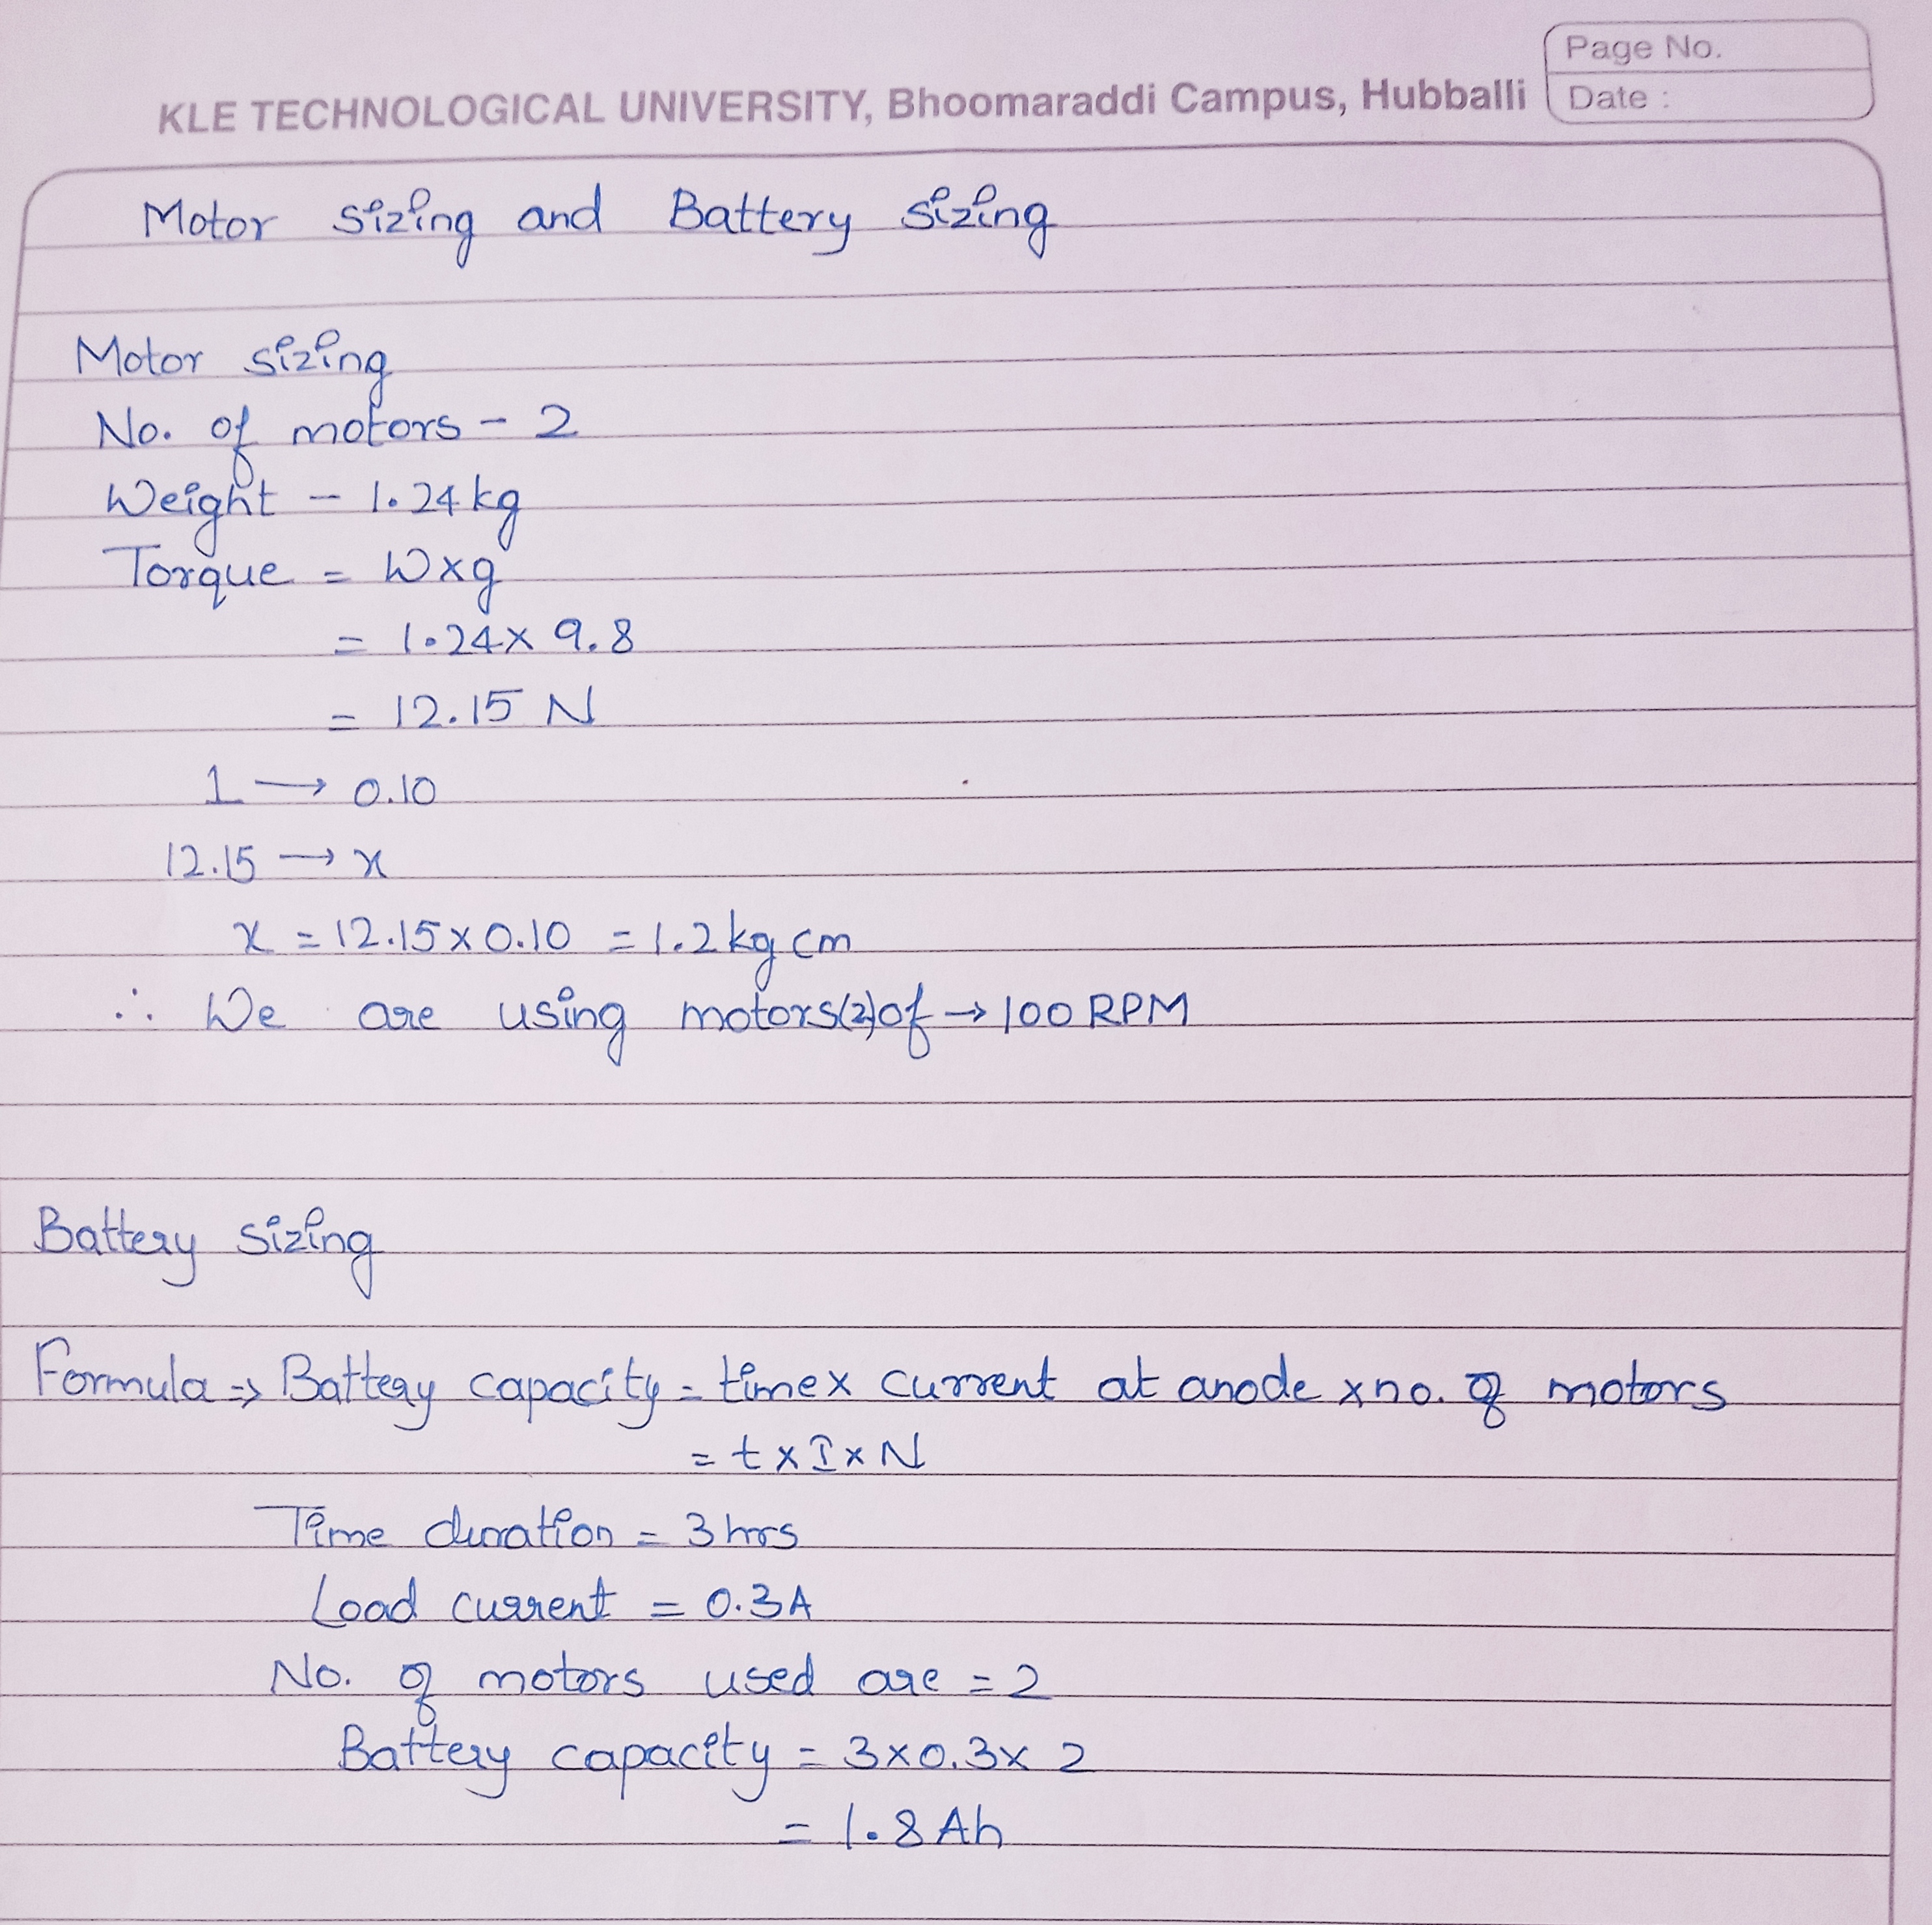 Page No.
Date :
KLE TECHNOLOGICAL UNIVERSITY, Bhoomaraddi Campus, Hubballi
Motor sizing and Battery sizing
Motor sizing
No. of motors - 2
Weight - 1.24 kg
Torque = W×g
= 1.24 × 9.8
= 12.15 N
1 → 0.10
12.15 → x
x = 12.15 × 0.10 = 1.2 kg cm
∴ We are using motors(2) of → 100 RPM
Battery sizing
Formula ⇒ Battery capacity = time × current at anode × no. of motors
= t × I × N
Time duration = 3 hrs
Load current = 0.3A
No. of motors used are = 2
Battery capacity = 3×0.3× 2
= 1.8 Ah